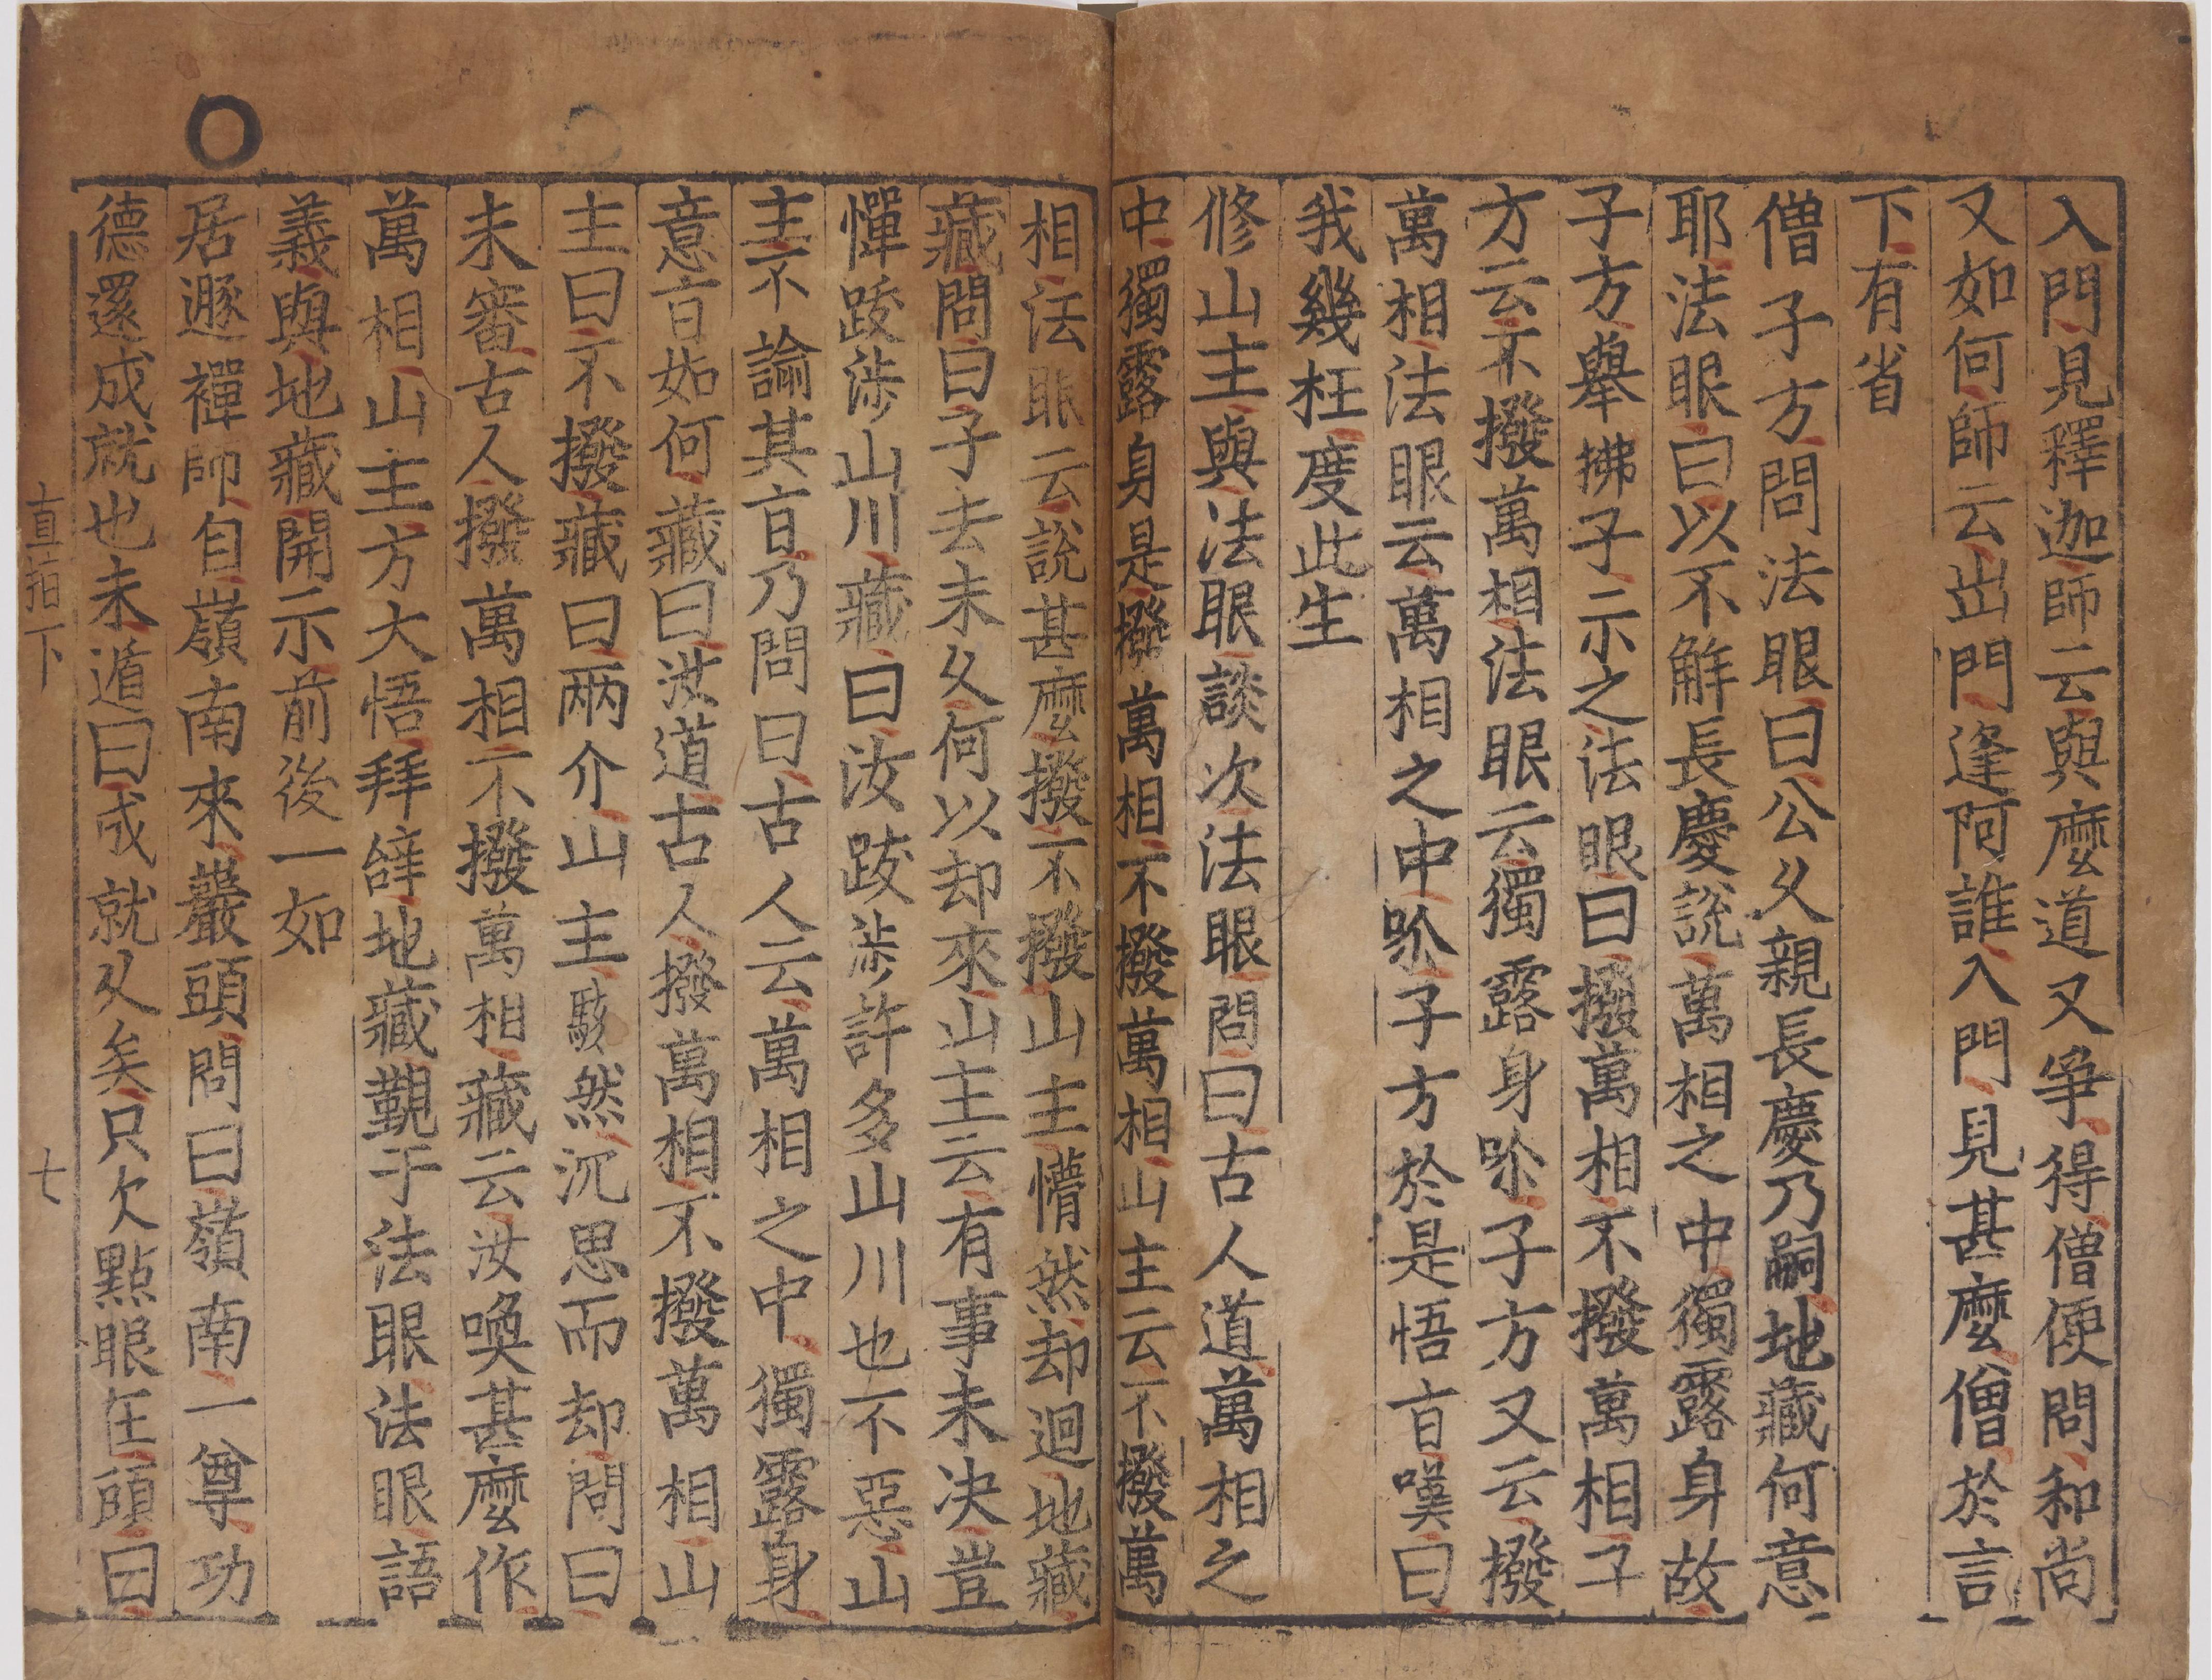 入門見釋迦師云與麽道又爭得僧便問和尚
又如何師云出門逢阿誰入門見甚麽僧於言
下有省
僧子方問法眼曰公久親長慶乃嗣地藏何意
耶法眼曰以不解長慶說萬相之中獨露身故
子方舉拂子示之法眼曰撥萬相不撥萬相子
方云不撥萬相法眼云獨露身㖇子方又云撥
萬相法眼云萬相之中㖇子方於是悟旨嘆曰
我幾枉度此生
修山主與法眼談次法眼問曰古人道萬相之
中獨露身是撥萬相不撥萬相山主云不撥萬
相法眼云說甚麽撥不撥山主懵然却迴地藏
藏問曰子去未久何以却來山主云有事未決豈
憚跋涉山川藏曰汝跋涉許多山川也不惡山
主不論其旨乃問曰古人云萬相之中獨露身
意旨如何藏曰汝道古人撥萬相不撥萬相山
主曰不撥藏曰兩介山主駭然沉思而却問曰
未審古人撥萬相不撥萬相藏云汝喚甚麽作
萬相山主方大悟拜辞地藏覲于法眼法眼語
義與地藏開示前後一如
居遯禪師自嶺南來巖頭問曰嶺南一尊功
德還成就也未遁曰成就久矣只欠點眼在頭曰
直指下
七